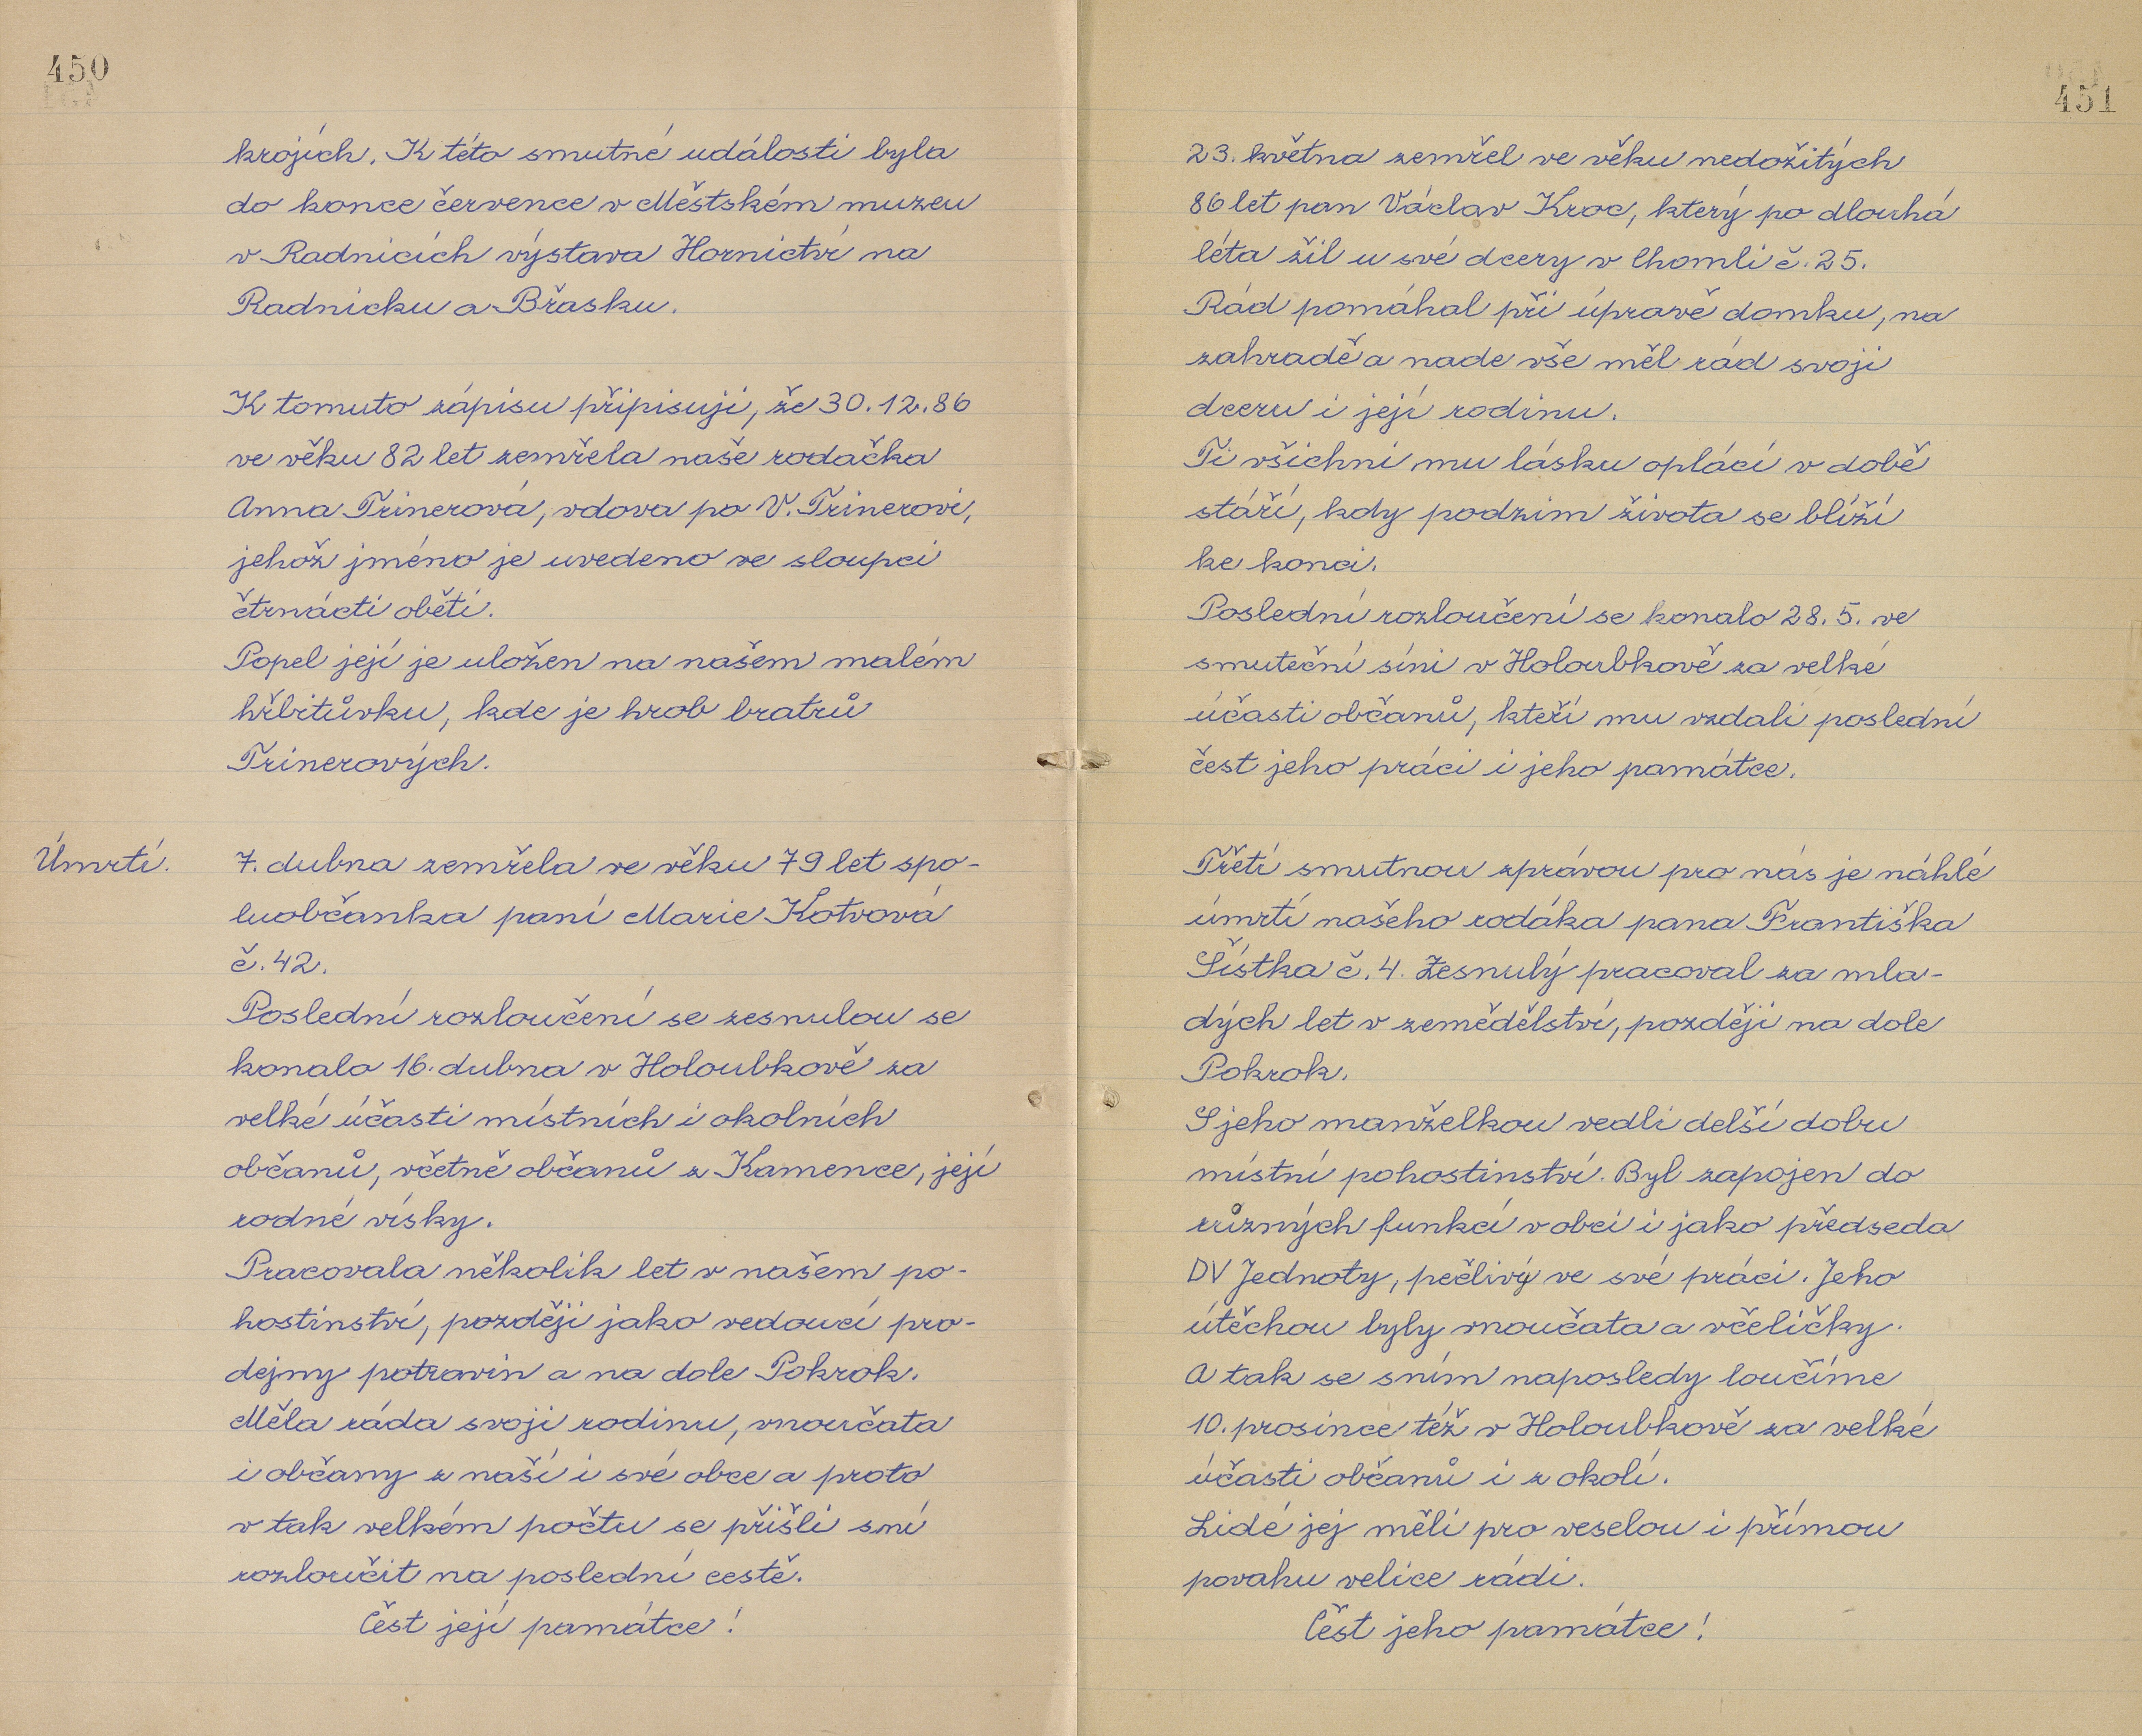 450
krojích. K této smutné události byla
do konce července v Městském muzeu
v Radnicích výstava Hornictví na
Radnicku a Břasku.
K tomuto zápisu připisuji, že 30.12.86
ve věku 82 let zemřela naše rodačka
Anna Trinerová, vdova po V. Trinerovi,
jehož jméno je uvedeno ve sloupci
čtrnácti obětí.
Popel její je uložen na našem malém
hřbitůvku, kde je hrob bratrů
Trinerových.
Úmrtí.
7. dubna zemřela ve věku 79 let spo-
luobčanka paní Marie Kotvová
č. 42.
Poslední rozloučení se zesnulou se
konalo 16. dubna v Holoubkově za
velké účasti místních i okolních
občanů, včetně občanů z Kamence, její
rodné vísky.
Pracovala několik let v našem po-
hostinství, později jako vedoucí pro-
dejny potravin a na dole Pokrok.
Měla ráda svoji rodinu, vnoučata
i občany z naší i své obce a proto
v tak velkém počtu se přišli s ní
rozloučit na poslední cestě.
Čest její památce!
451
23. května zemřel ve věku nedožitých
86 let pan Václav Kroc, který po dlouhá
léta žil u své dcery v Chomli č. 25.
Rád pomáhal při úpravě domku, na
zahradě a nade vše měl rád svoji
dceru i její rodinu.
Ti všichni mu lásku oplácí v době
stáří, kdy podzim života se blíží
ke konci.
Poslední rozloučení se konalo 28. 5. ve
smuteční síni v Holoubkově za velké
účasti občanů, kteří mu vzdali poslední
čest jeho práci i jeho památce.
Třetí smutnou zprávou pro nás je náhlé
úmrtí našeho rodáka pana Františka
Šístka č. 4. Zesnulý pracoval za mla-
dých let v zemědělství, později na dole
Pokrok.
S jeho manželkou vedli delší dobu
místní pohostinství. Byl zapojen do
různých funkcí v obci i jako předseda
DV Jednoty, pečlivý ve své práci. Jeho
útěchou byly vnoučata a včeličky.
A tak se s ním naposledy loučíme
10. prosince též v Holoubkově za velké
účasti občanů i z okolí.
Lidé jej měli pro veselou i přímou
povahu velice rádi.
Čest jeho památce!